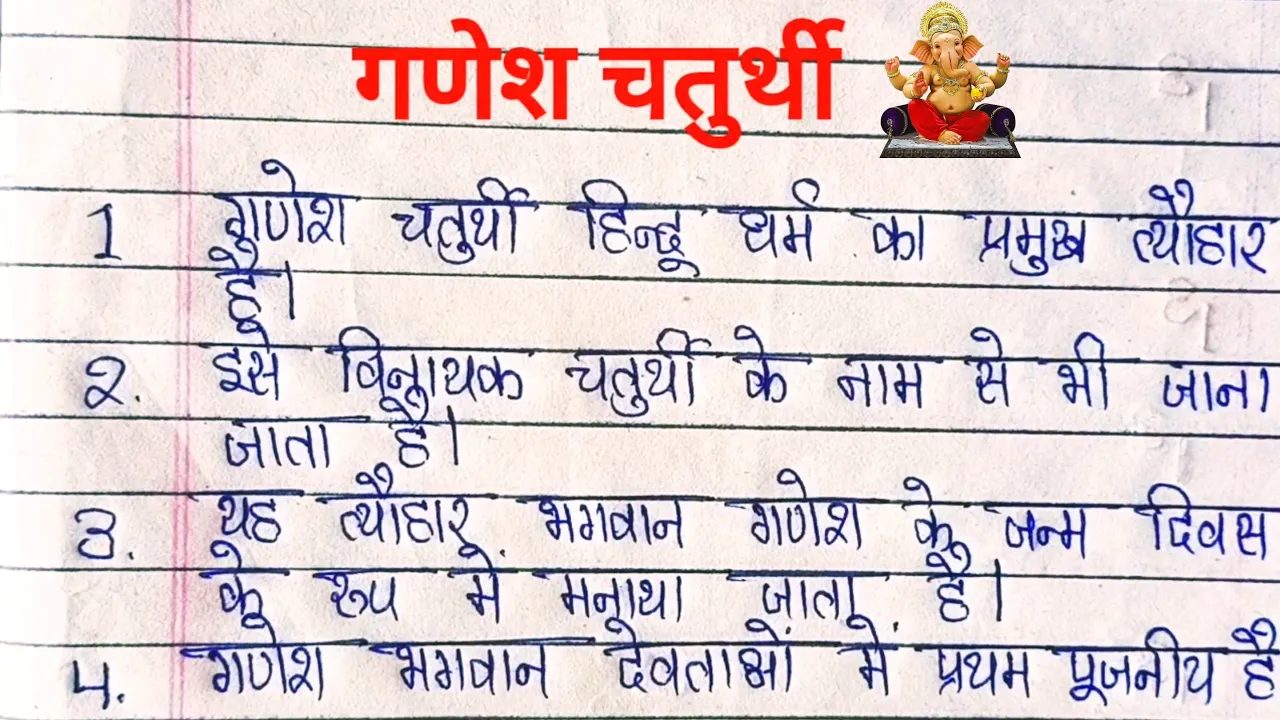 गणेश चतुर्थी
1 गणेश चतुर्थी हिन्दू धर्म का प्रमुख त्यौहार
है।
2. इसे विनायक चतुर्थी के नाम से भी जाना
जाता है।
3. यह त्यौहार भगवान गणेश के जन्म दिवस
के रूप में मनाया जाता है।
4. गणेश भगवान देवताओं में प्रथम पूजनीय है